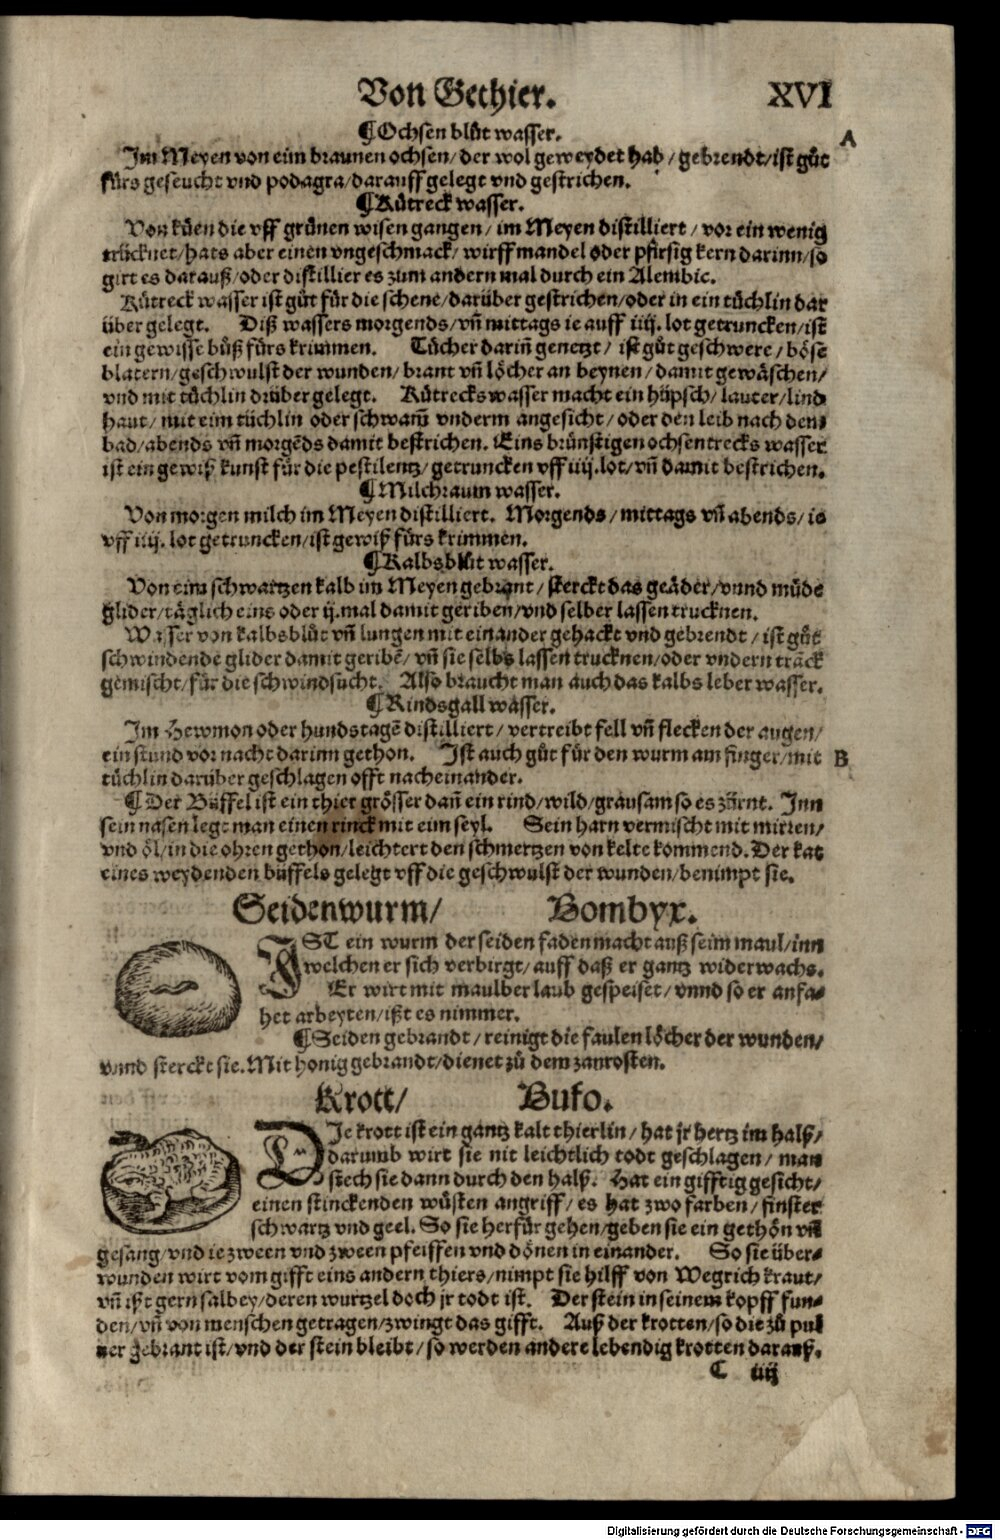 Von Gethier. XVI
¶Ochsen blůt wasser. A
Im Meyen von eim braunen ochsen/ der wol geweydet hab / gebrendt/ist gůt
fürs geseucht vnd podagra/darauff gelegt vnd gestrichen.
¶Kůtreck wasser.
Von küen die vff grünen wisen gangen / im Meyen distilliert / vor ein wenig
trücknet/hats aber einen vngeschmack/ wirff mandel oder pfirsig kern darinn/so
girt es darauß/oder distillier es zum andern mal durch ein Alembic.
Kůtreck wasser ist gůt für die schene/darüber gestrichen/oder in ein tüchlin dar
über gelegt. Diß wassers morgends/vñ mittags ie auff iiij. lot getruncken/ist
ein gewisse bůß fürs krimmen. Tücher dariñ genetzt / ist gůt geschwere/ böse
blatern/geschwulst der wunden/ brant vñ löcher an beynen/damit gewäschen/
vnd mit tüchlin drüber gelegt. Kůtrecks wasser macht ein hüpsch/ lauter/lind
haut/ mit eim tüchlin oder schwam̃ vnderm angesicht/ oder den leib nach dem
bad/abends vñ morgẽds damit bestrichen. Eins brünstigen ochsentrecks wasser
ist ein gewiß kunst für die pestilentz/getruncken vff iiij.lot/vñ damit bestrichen.
¶Milchraum wasser.
Von morgen milch im Meyen distilliert. Morgends/ mittags vñ abends/ie
vff iiij. lot getruncken/ist gewiß fürs krimmen.
¶Kalbsblůt wasser.
Von eim schwartzen kalb im Meyen gebrant/ sterckt das geäder/vnnd müde
glider/täglich eins oder ij.mal damit geriben/vnd selber lassen trucknen.
Wasser von kalbsblůt vñ lungen mit einander gehackt vnd gebrendt / ist gůt
schwindende glider damit geribẽ/ vñ sie selbs lassen trucknen/oder vndern trãck
gemischt/für die schwindsucht. Also braucht man auch das kalbs leber wasser.
¶Rindsgall wasser.
Im Hewmon oder hundstagẽ distilliert/ vertreibt fell vñ flecken der augen/
ein stund vor nacht darinn gethon. Ist auch gůt für den wurm am finger/mit B
tüchlin darüber geschlagen offt nacheinander.
¶Der Büffel ist ein thier grösser dañ ein rind/wild/grausam so es zürnt. Inn
sein nasen legt man einen rinck mit eim seyl. Sein harn vermischt mit mirren/
vnd öl/in die ohren gethon/leichtert den schmertzen von kelte kommend. Der kat
eines weydenden büffels gelegt vff die geschwulst der wunden/benimpt sie.
Seidenwurm/ Bombyx.
IST ein wurm der seiden faden macht auß seim maul/inn
welchen er sich verbirgt/auff daß er gantz widerwachs.
Er wirt mit maulber laub gespeiset/vnnd so er anfa-
het arbeyten/ißt es nimmer.
¶Seiden gebrandt/reinigt die faulen löcher der wunden/
vnnd sterckt sie.Mit honig gebrandt/dienet zů dem zanrosten.
Krott/ Bufo.
DIe krott ist ein gantz kalt thierlin/hat jr hertz im halß/
darumb wirt sie nit leichtlich todt geschlagen/ man
stech sie dann durch den halß. Hat ein gifftig gesicht/
einen stinckenden wüsten angriff/ es hat zwo farben/finster
schwartz vnd geel. So sie herfür gehen/geben sie ein gethön vñ
gesang/vnd ie zween vnd zween pfeiffen vnd dönen in einander. So sie über-
wunden wirt vom gifft eins andern thiers/nimpt sie hilff von Wegrich kraut/
vñ ißt gern salbey/deren wurtzel doch jr todt ist. Der stein in seinem kopff fun-
den/vñ von menschen getragen/zwingt das gifft. Auß der krotten/so die zů pul
uer gebrant ist/vnd der stein bleibt/so werden andere lebendig krotten darauß.
C iiij
Digitalisierung gefördert durch die Deutsche Forschungsgemeinschaft - DFG